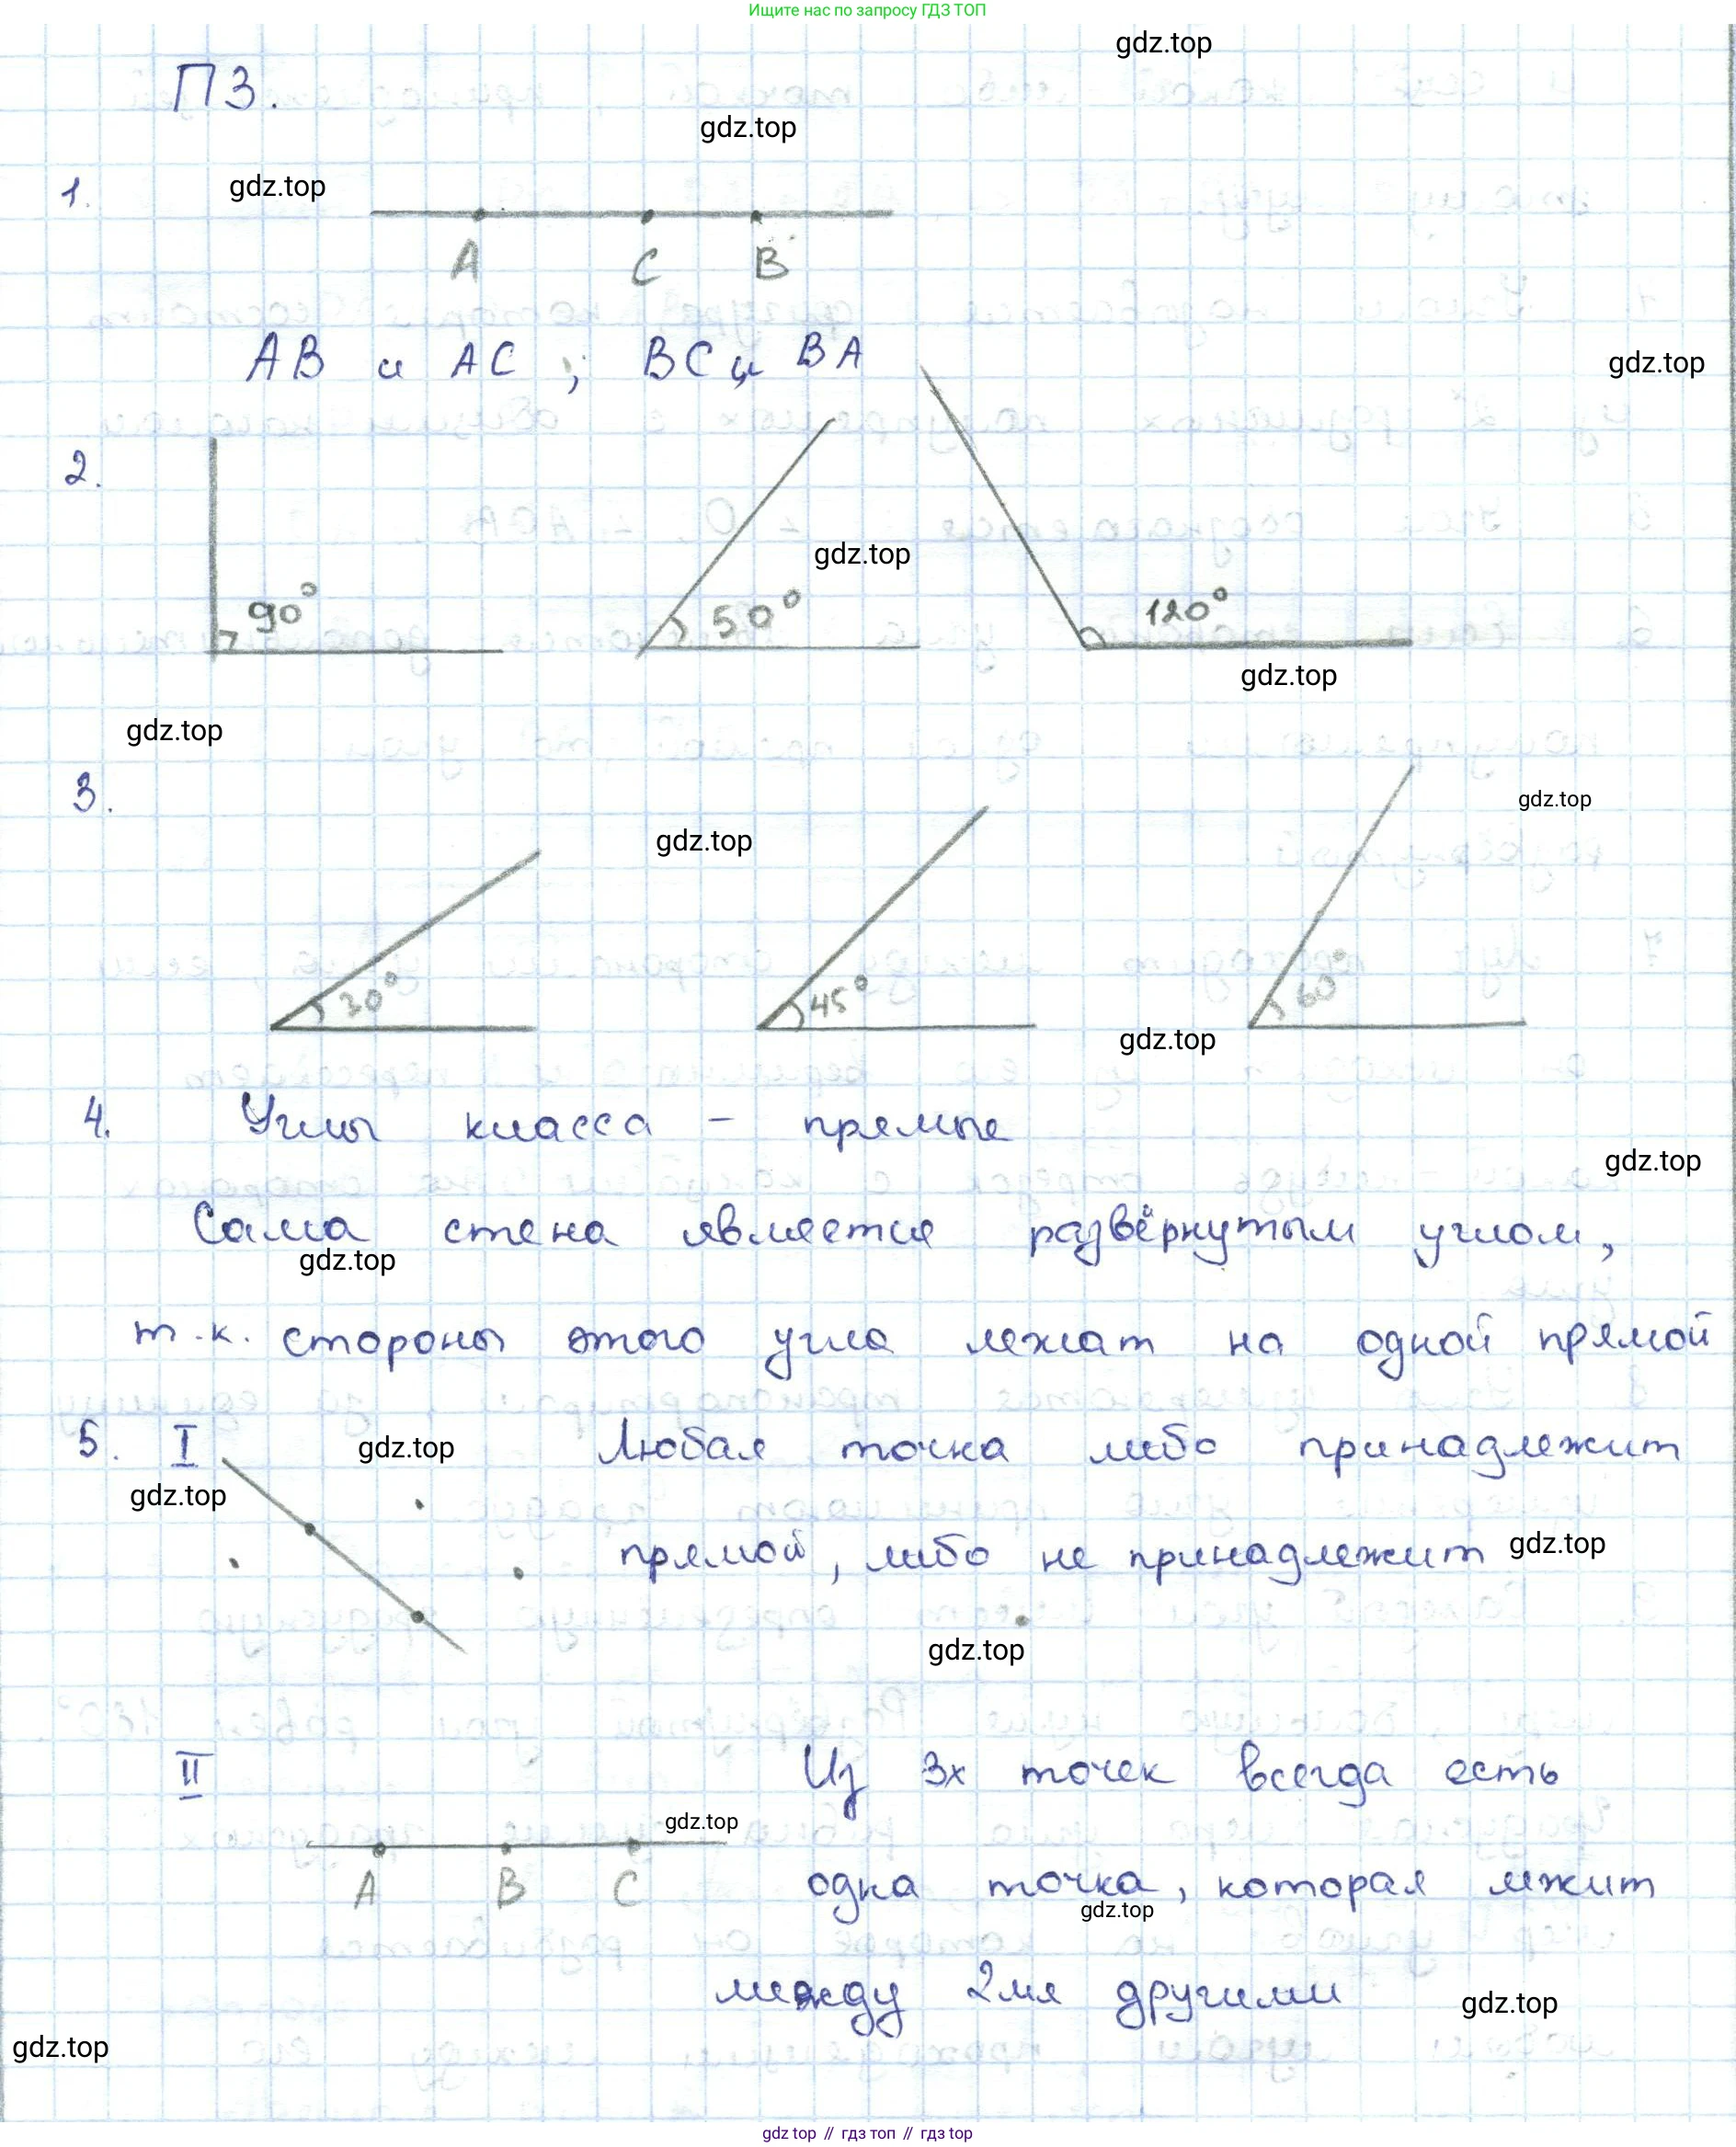 Ищите нас по запросу ГДЗ ТОП
gdz.top
П3.
gdz.top
1.
gdz.top
A C B
AB и AC ; BC и BA
gdz.top
2.
gdz.top
90° 50° 120°
gdz.top
gdz.top
3.
gdz.top
gdz.top
30° 45° 60°
gdz.top
4. Углы класса – прямые
gdz.top
Сама стена является развёрнутым углом,
gdz.top
т.к. стороны этого угла лежат на одной прямой
5. I Любая точка либо принадлежит
gdz.top
gdz.top
прямой, либо не принадлежит
gdz.top
gdz.top
II Из 3х точек всегда есть
gdz.top
A B C одна точка, которая лжит
gdz.top
между 2мя другими
gdz.top
gdz.top
gdz top // гдз топ // гдз top